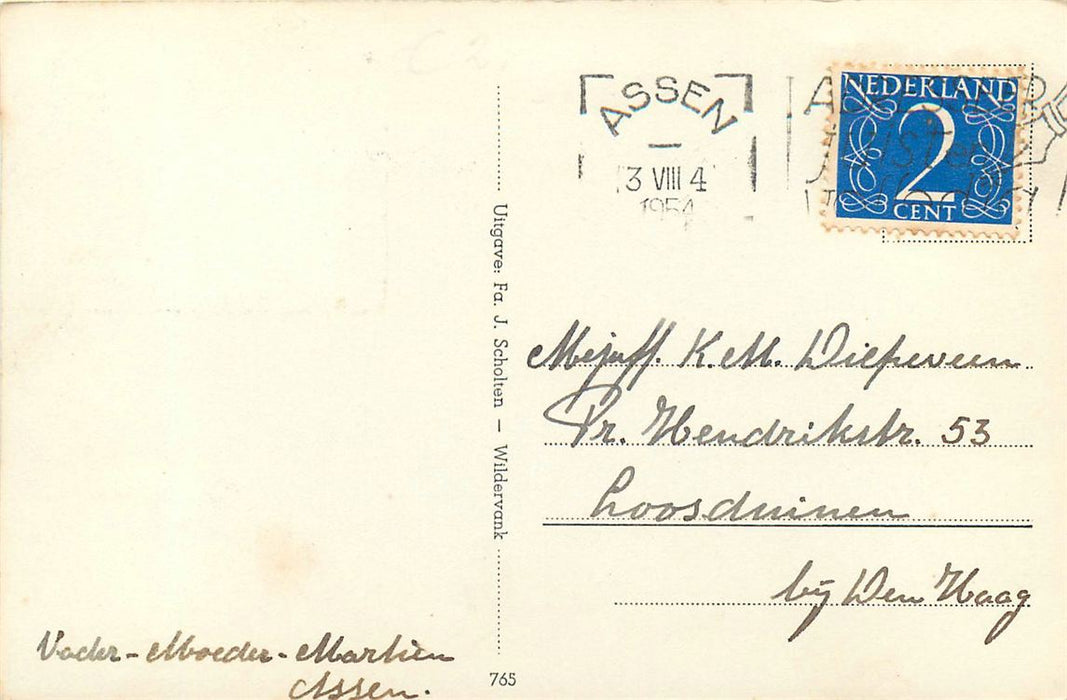 ASSEN
3 VIII 4
1954
NEDERLAND
2
CENT
Uitgave: Fa. J. Scholten — Wildervank
Mejuff. K.M. Diepeveen
Pr. Hendrikstr. 53
Loosduinen
bij Den Haag
Vader - Moeder - Martien
Assen.
765